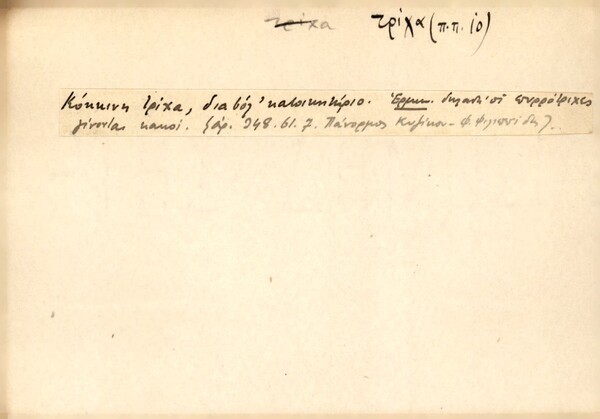 τρίχα τρίχα (π.π. 10)
Κόκκινη τρίχα, διαβόλ' κατοικητήριο. Ἑρμην. δηλαδή οἱ πυρρότριχες
γίνονται κακοί. (ἀρ. 948. 61. 7. Πάνορμος Κυζίκου - Φ. Φιλιππίδης).